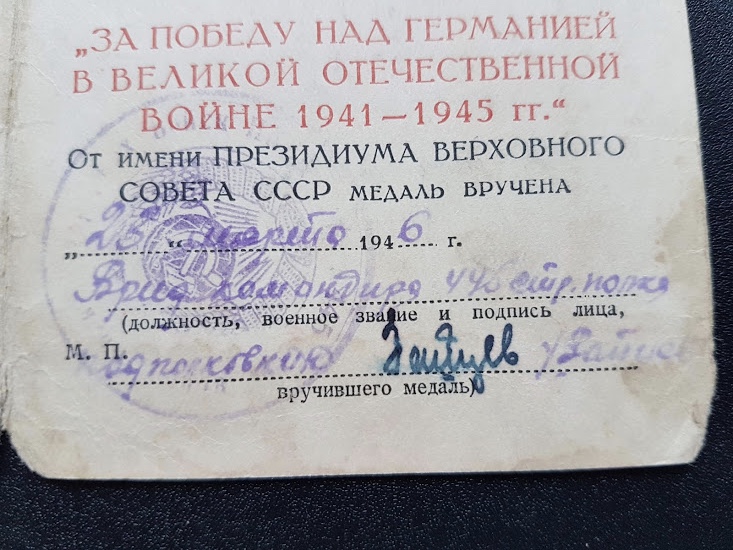 „ЗА ПОБЕДУ НАД ГЕРМАНИЕЙ
В ВЕЛИКОЙ ОТЕЧЕСТВЕННОЙ
ВОЙНЕ 1941—1945 гг.“
ОТ ИМЕНИ ПРЕЗИДИУМА ВЕРХОВНОГО
СОВЕТА СССР МЕДАЛЬ ВРУЧЕНА
марта 1946 г.
Врид командира стр. полка
(должность, военное звание и подпись лица,
М. П. подполковник
вручившего медаль)